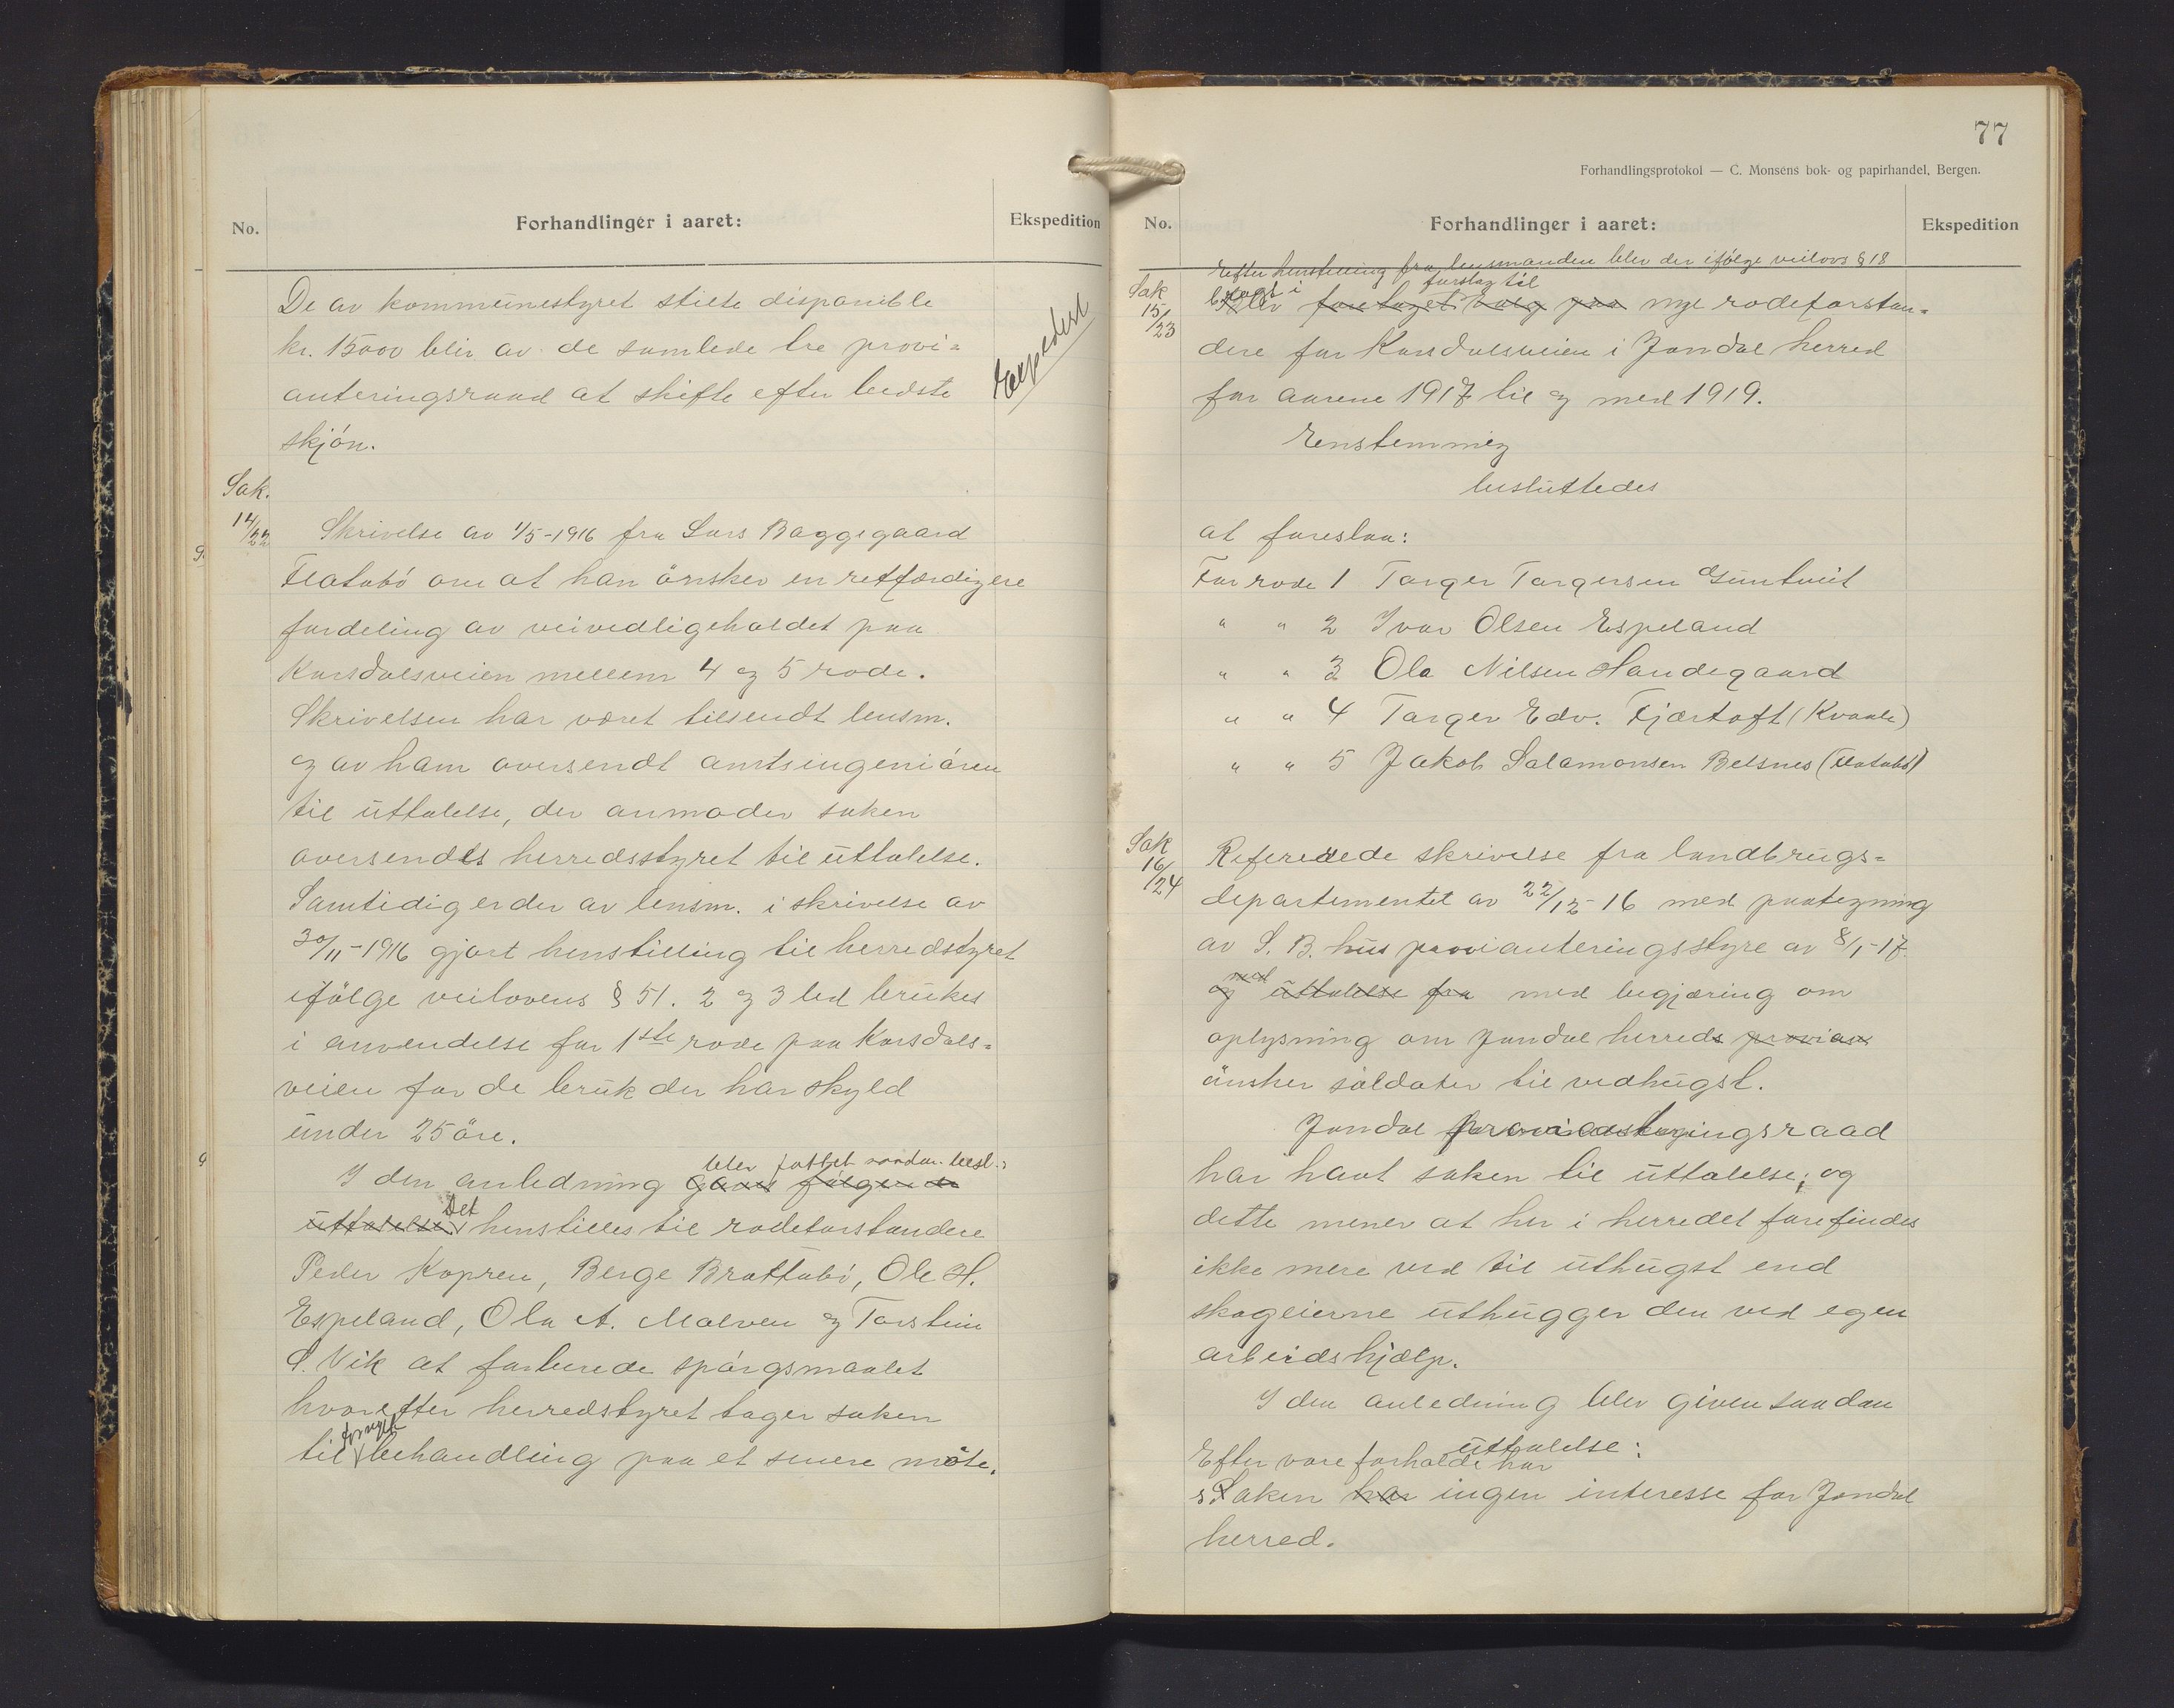 No.
Forhandlinger i aaret:
Ekspedition
De av kommunestyret stilte disponible
kr. 15000 blir av de samlede tre provi-
anteringsraad at skifte efter bedste
skjön.
Expedert
Sak.
14/22
Skrivelse av 1/5-1916 fra Lars Baggegaard
Flatabö om at han önsker en retfærdigere
fordeling av veivedligeholdet paa
Karsdalsveien mellem 4 og 5 rode.
Skrivelsen har været tilsendt lensm.
og av ham oversendt amtsingeniören
til uttalelse, der anmoder saken
oversendts herredsstyret til uttalelse.
Samtidig er der av lensm. i skrivelse av
30/11-1916 gjort henstilling til herredstyret
ifölge veilovens § 51. 2 og 3 led brukes
i anvendelse for 1ste rode paa Karsdals-
veien for de bruk der har skyld
under 25 öre.
blev fattet saadan besl.:
I den anledning gaves følgende
uttalelse Det henstilles til rodeforstandere
Peder Kopren, Berge Brattabö, Ole H.
Espeland, Ola A. Malven og Torstein
L. Vik at forberede spörgsmaalet
hvorefter herredstyret tager saken
til fornyet behandling paa et senere möte.
77
Forhandlingsprotokol — C. Monsens bok- og papirhandel, Bergen.
No.
Forhandlinger i aaret:
Ekspedition
Efter henstilling fra lensmanden blev der ifölge veilovs § 18
Sak
15/23
bragt i forslag til
Blev foretaget valg paa nye rodeforstan-
dere for Karsdalsveien i Jondal herred
for aarene 1917 til og med 1919.
Enstemmig
besluttedes
at foreslaa:
For rode 1 Torger Torgersen Guntveit
" " 2 Ivar Olsen Espeland
" " 3 Ola Nilsen Handegaard
" " 4 Torger Edv. Fjærtoft (Kvaale)
" " 5 Jakob Salamonsen Belsnes (Flatabö)
Sak
16/24
Refererede skrivelse fra landbrugs-
departementet av 22/12-16 med paategning
av S. B. hus provianteringsstyre av 8/1-17.
og med uttalelse fra med begjæring om
oplysning om Jondal herreds provian
önsker soldater til vedhugst.
Jondal provianteringsraad
har havt saken til uttalelse; og
dette mener at her i herredet forefindes
ikke mere ved til uthugst end
skogeierne uthugger den ved egen
arbeidshjælp.
I den anledning blev given saadan
uttalelse:
Efter vore forholde har
saken har ingen interesse for Jondal
herred.